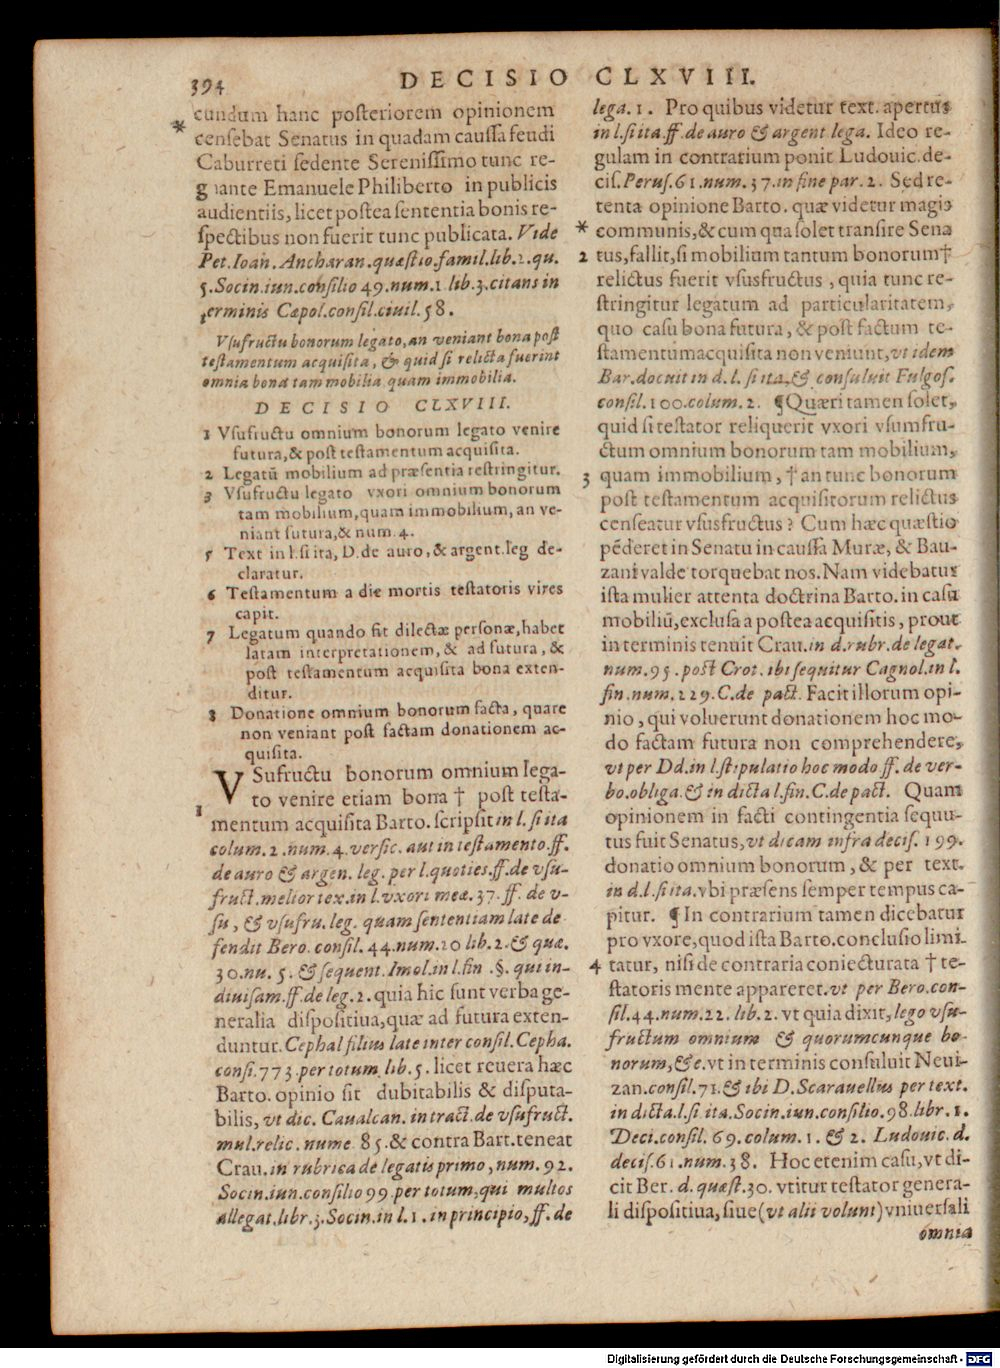 394
DECISIO CLXVIII.
cundum hanc posteriorem opinionem
* censebat Senatus in quadam caussa feudi
Caburreti sedente Serenissimo tunc re-
gnante Emanuele Philiberto in publicis
audientiis, licet postea sententia bonis re-
spectibus non fuerit tunc publicata. Vide
Pet. Ioan. Ancharan. quæstio. famil. lib. 2. qu.
5. Socin. iun. consilio 49. num. 1 lib. 3. citans in
terminis Capol. consil. ciuil. 58.
Vsufructu bonorum legato, an veniant bona post
testamentum acquisita, & quid si relicta fuerint
omnia bona tam mobilia quam immobilia.
DECISIO CLXVIII.
1 Vsufructu omnium bonorum legato venire
futura, & post testamentum acquisita.
2 Legatũ mobilium ad præsentia restringitur.
3 Vsufructu legato vxori omnium bonorum
tam mobilium, quam immobilium, an ve-
niant futura, & num. 4.
5 Text in l. si ita, D. de auro, & argent. leg de-
claratur.
6 Testamentum a die mortis testatoris vires
capit.
7 Legatum quando fit dilectæ personæ, habet
latam interpretationem, & ad futura, &
post testamentum acquisita bona exten-
ditur.
8 Donatione omnium bonorum facta, quare
non veniant post factam donationem ac-
quisita.
VSufructu bonorum omnium lega-
1 to venire etiam bona † post testa-
mentum acquisita Barto. scripsit in l. si ita
colum. 2. num. 4. versic. aut in testamento. ff.
de auro & argen. leg. per l. quoties. ff. de vsu-
fruct. melior tex. in l. vxori meæ. 37. ff. de v-
su, & vsufru. leg. quam sententiam late de
fendit Bero. consil. 44. num. 20 lib. 2. & quæ.
30. nu. 5. & sequent. Imol. in l. fin. §. qui in-
diuisam. ff. de leg. 2. quia hic sunt verba ge-
neralia dispositiua, quæ ad futura exten-
duntur. Cephal filius late inter consil. Cepha.
consi. 773. per totum lib. 5. licet reuera hæc
Barto. opinio sit dubitabilis & disputa-
bilis, vt dic. Caualcan. in tract. de vsufruct.
mul. relic. nume 85. & contra Bart. teneat
Crau. in rubrica de legatis primo, num. 92.
Socin. iun. consilio 99. per totum, qui multos
allegat. libr. 3. Socin. in l. 1. in principio, ff. de
lega. 1. Pro quibus videtur text. apertus
in l. si ita. ff. de auro & argent lega. Ideo re-
gulam in contrarium ponit Ludouic. de-
cis. Perus. 61. num. 37. in fine par. 2. Sed re-
tenta opinione Barto. quæ videtur magis
* communis, & cum qua solet transire Sena
2 tus, fallit, si mobilium tantum bonorum †
relictus fuerit vsusfructus, quia tunc re-
stringitur legatum ad particularitatem,
quo casu bona futura, & post factum te-
stamentum acquisita non veniunt, vt idem
Bar. docuit in d. l. si ita, & consuluit Fulgos.
consil. 100. colum. 2. ¶ Quæri tamen solet,
quid si testator reliquerit vxori vsumfru-
ctum omnium bonorum tam mobilium,
3 quam immobilium, † an tunc bonorum
post testamentum acquisitorum relictus
censeatur vsusfructus? Cum hæc quæstio
pẽderet in Senatu in caussa Muræ, & Bau-
zani valde torquebat nos. Nam videbatur
ista mulier attenta doctrina Barto. in casu
mobiliũ, exclusa a postea acquisitis, prout
in terminis tenuit Crau. in d. rubr. de legat.
num. 95. post Crot. ibi sequitur Cagnol. in l.
fin. num. 229. C. de pact. Facit illorum opi-
nio, qui voluerunt donationem hoc mo-
do factam futura non comprehendere,
vt per Dd. in l. stipulatio hoc modo ff. de ver-
bo. obliga. & in dicta l. fin. C. de pact. Quam
opinionem in facti contingentia sequu-
tus fuit Senatus, vt dicam infra decis. 199.
donatio omnium bonorum, & per text.
in d. l. si ita. vbi præsens semper tempus ca-
pitur. ¶ In contrarium tamen dicebatur
pro vxore, quod ista Barto. conclusio limi-
4 tatur, nisi de contraria coniecturata † te-
statoris mente appareret. vt per Bero. con-
sil. 44. num. 22. lib. 2. vt quia dixit, lego vsu-
fructum omnium & quorumcunque bo-
norum, &c. vt in terminis consuluit Neui-
zan. consil. 71. & ibi D. Scarauellius per text.
in dicta. l. si ita. Socin. iun. consilio. 98. libr. 1.
Deci. consil. 69. colum. 1. & 2. Ludouic. d.
decis. 61. num. 38. Hoc etenim casu, vt di-
cit Ber. d. quæst. 30. vtitur testator genera-
li dispositiua, siue (vt alii volunt) vniuersali
omnia
Digitalisierung gefördert durch die Deutsche Forschungsgemeinschaft - DFG